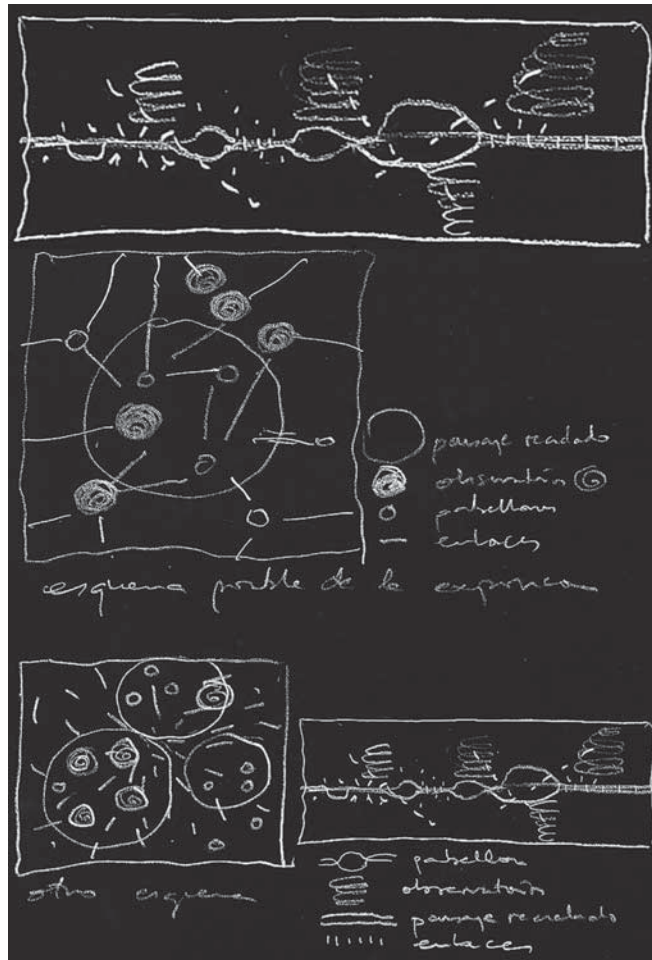 paisaje
observatorio
pabellones
enlaces
esquema posible de la exposicion
otro esquema
pabellon
observatorio
paisaje
enlaces